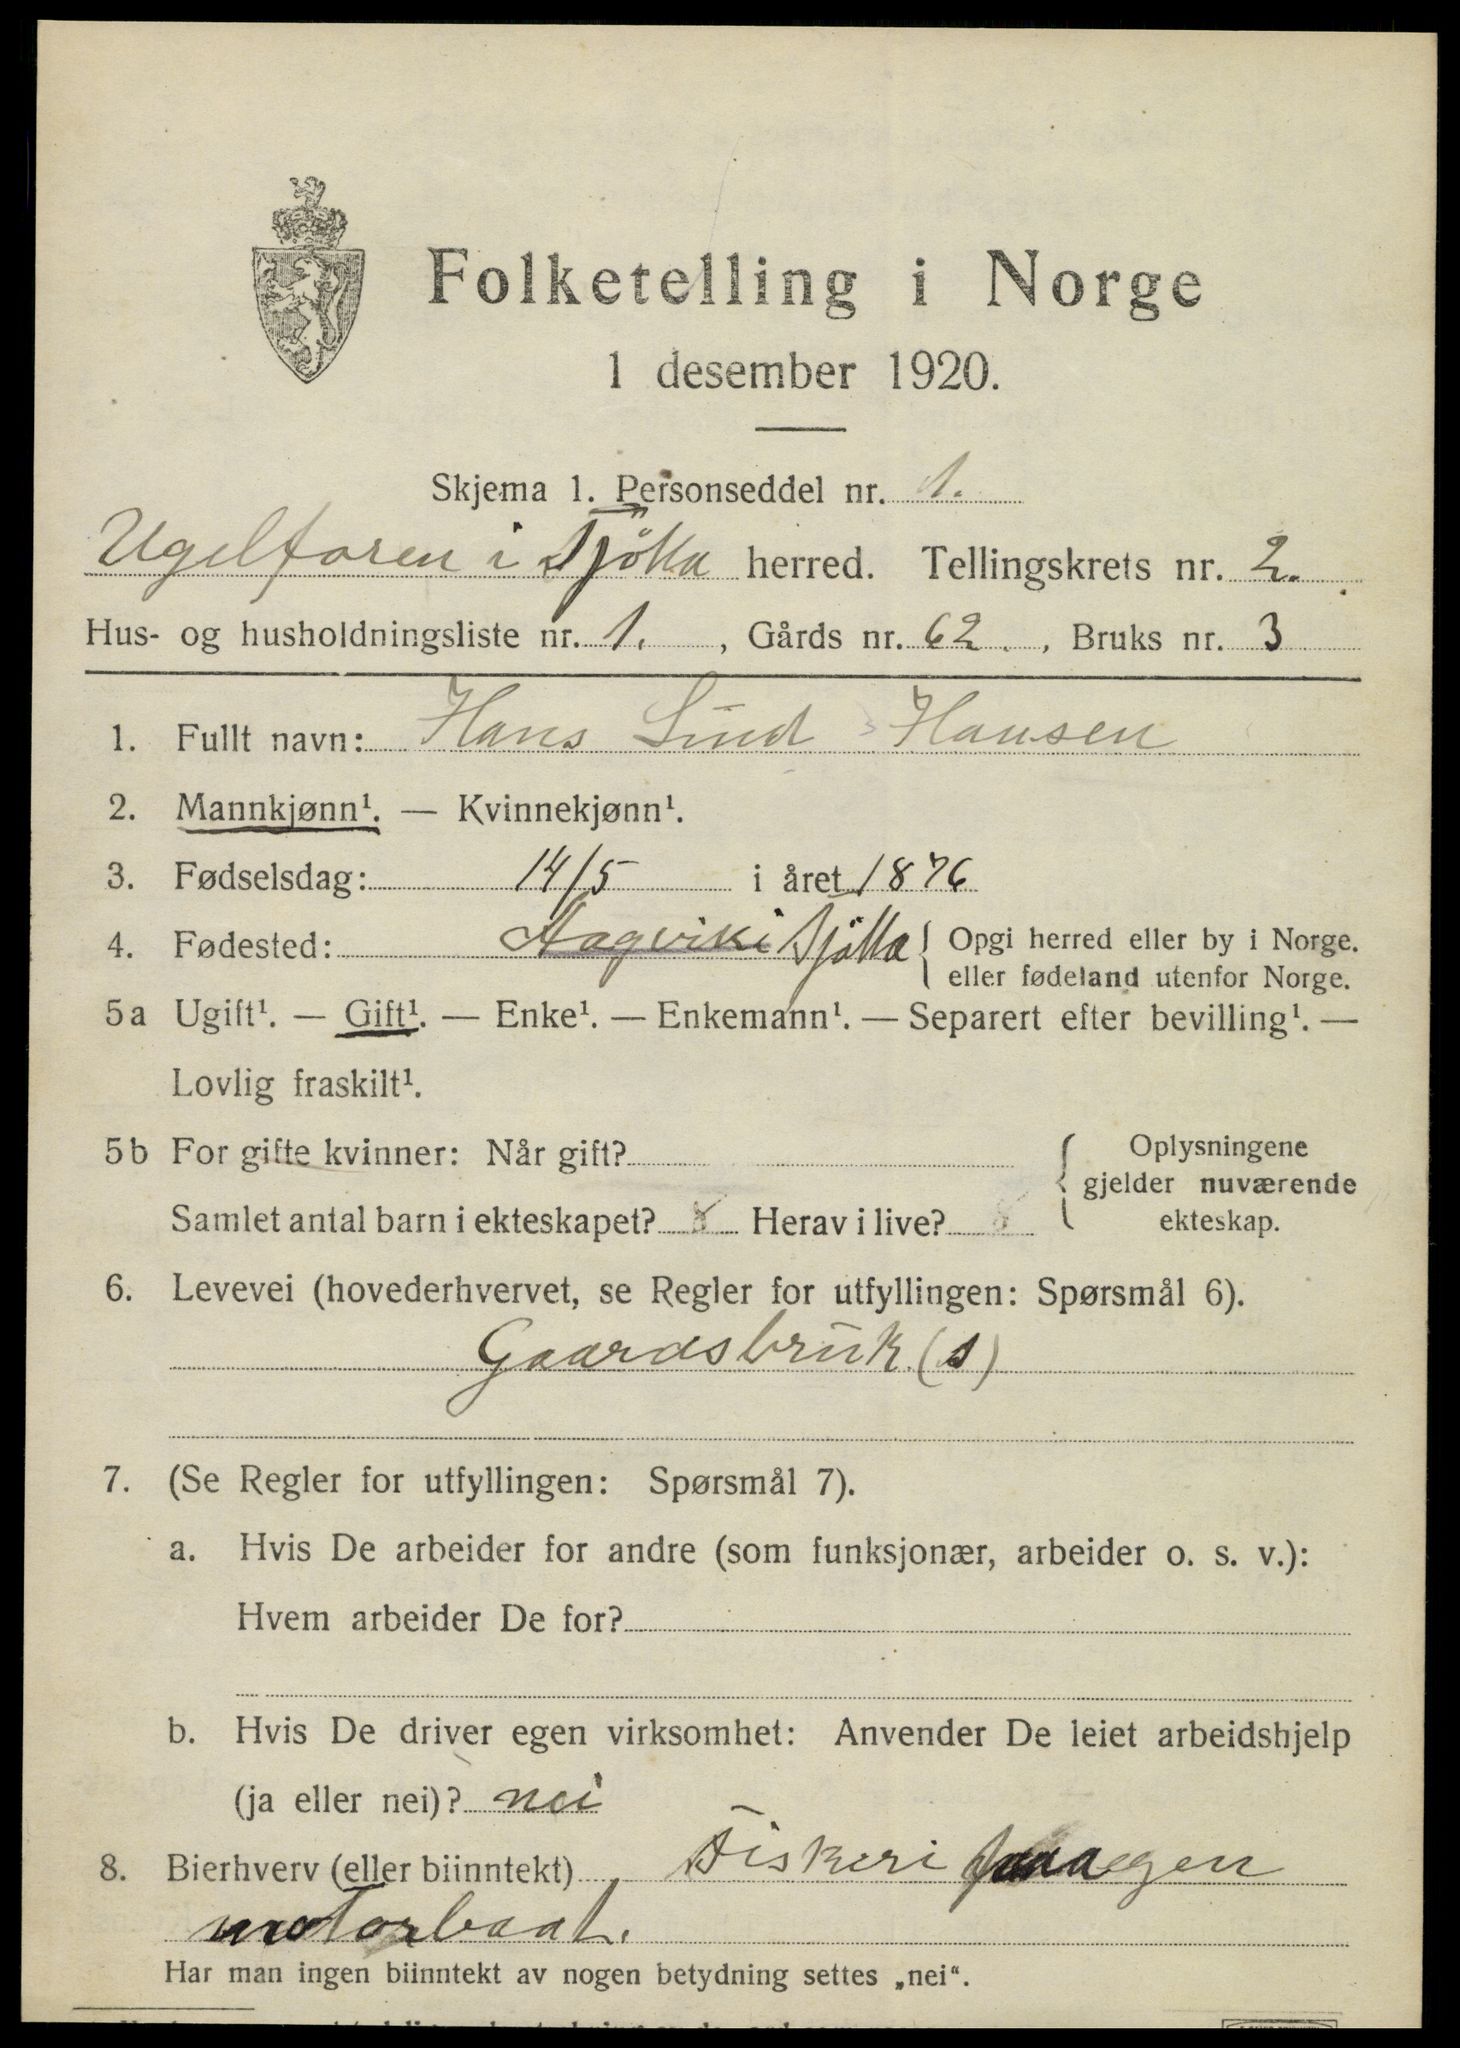 Folketelling i Norge
1 desember 1920.
Skjema 1. Personseddel nr. 1.
i Tjøtta herred. Tellingskrets nr. 2.
Hus- og husholdningsliste nr. 1. , Gårds nr. 62. , Bruks nr. 3
1. Fullt navn: Hans Lind Hansen
2. Mannkjønn¹. — Kvinnekjønn¹.
3. Fødselsdag: 14/5 i året 1876
4. Fødested: Aagvik i Tjøtta { Opgi herred eller by i Norge.
eller fødeland utenfor Norge.
5a Ugift¹. — Gift¹. — Enke¹. — Enkemann¹. — Separert efter bevilling¹. —
Lovlig fraskilt¹.
5b For gifte kvinner: Når gift? { Oplysningene
gjelder nuværende
ekteskap.
Samlet antal barn i ekteskapet? Herav i live?
6. Levevei (hovederhvervet, se Regler for utfyllingen: Spørsmål 6).
Gaardsbruk (s)
7. (Se Regler for utfyllingen: Spørsmål 7).
a. Hvis De arbeider for andre (som funksjonær, arbeider o. s. v.):
Hvem arbeider De for?
b. Hvis De driver egen virksomhet: Anvender De leiet arbeidshjelp
(ja eller nei)? nei
8. Bierhverv (eller biinntekt) Fiskeri paa egen
motorbaat.
Har man ingen biinntekt av nogen betydning settes „nei“.